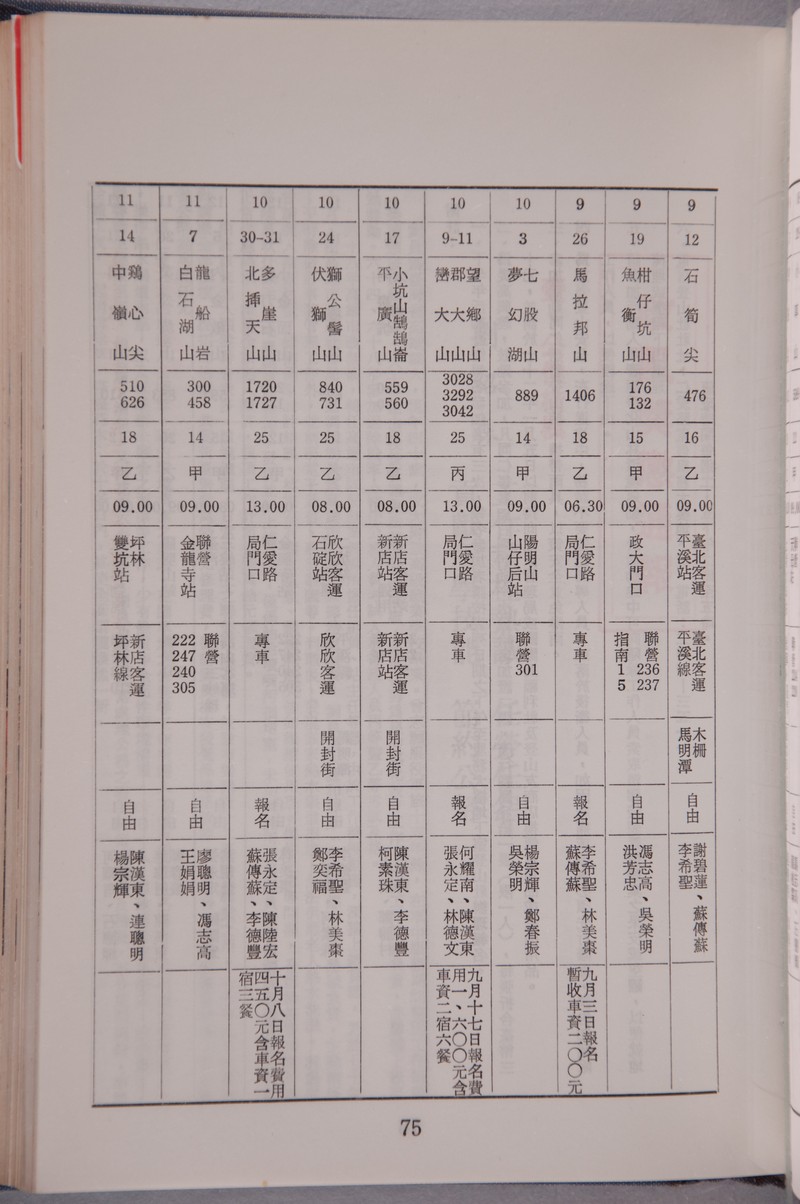 9
12
石筍尖
476
16
乙
09.00
臺北客運
平溪站
臺北客運
平溪線
木柵
馬明潭
自由
謝碧蓮
李希聖、蘇傳蘇
9
19
柑仔坑山
魚衡山
176
132
15
甲
09.00
政大門口
聯營
236
237
指南
1
5
自由
馮志高
洪芳忠、吳榮明
9
26
馬拉邦山
1406
18
乙
06.30
仁愛路
局門口
專車
報名
李希聖
蘇傳蘇、林美棗
九月三日報名
暫收車資二〇〇元
10
3
七股山
夢幻湖
889
14
甲
09.00
陽明山
山仔后站
聯營
301
自由
楊宗輝
吳榮明、鄭春振
10
9-11
望鄉山
郡大山
巒大山
3028
3292
3042
25
丙
13.00
仁愛路
局門口
專車
報名
何耀南、陳漢東
張永定、林德文
九月十七日報名費
用一、六〇〇元含
車資二宿六餐
10
17
小坑山鵠鵠崙
平廣山
559
560
18
乙
08.00
新店客運
新店站
新店客運
新店站
開封街
自由
陳漢東
柯素珠、李德豐
10
24
獅公髻山
伏獅山
840
731
25
乙
08.00
欣欣客運
石碇站
欣欣客運
開封街
自由
李希聖
鄭奕福、林美棗
10
30-31
多崖山
北插天山
1720
1727
25
乙
13.00
仁愛路
局門口
專車
報名
張永定、陳陸宏
蘇傳蘇、李德豐
十月八日報名費用
四五〇元含車資一
宿三餐
11
7
龍船岩
白石湖山
300
458
14
甲
09.00
聯營
金龍寺站
聯營
222
247
240
305
自由
廖聰明
王娟娟、馮志高
11
14
鷄心尖
中嶺山
510
626
18
乙
09.00
坪林
雙坑站
新店客運
坪林線
自由
陳漢東
楊宗輝、連聰明
75